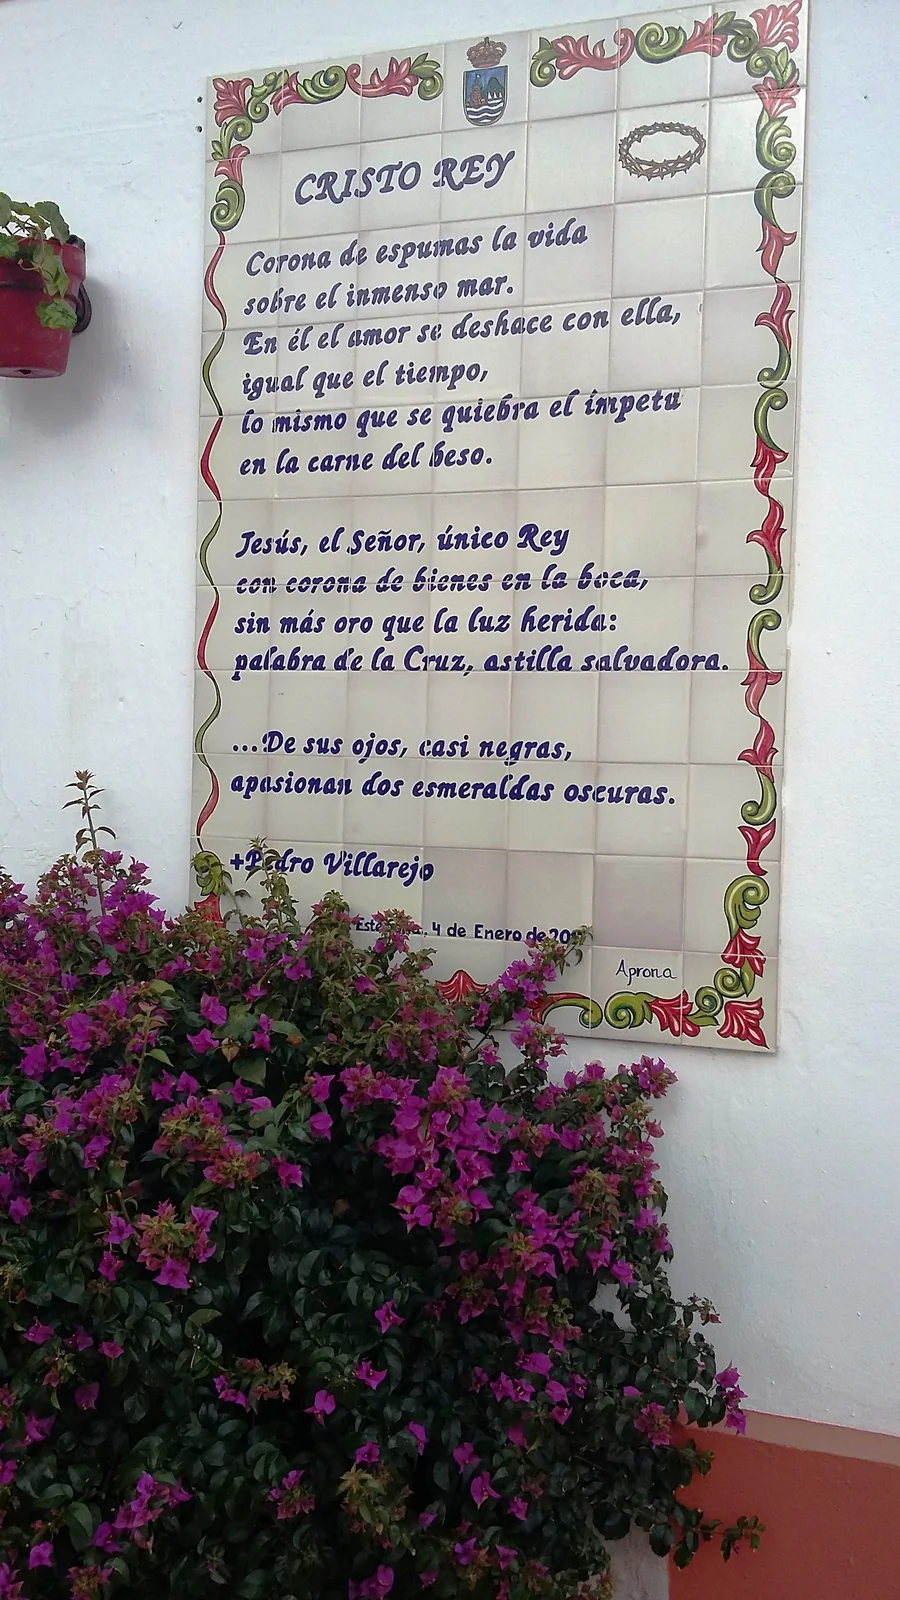 CRISTO REY
Corona de espumas la vida
sobre el inmenso mar.
En él el amor se deshace con ella,
igual que el tiempo,
lo mismo que se quiebra el ímpetu
en la carne del beso.
Jesús, el Señor, único Rey
con corona de bienes en la boca,
sin más oro que la luz herida:
palabra de la Cruz, astilla salvadora.
...De sus ojos, casi negras,
apasionan dos esmeraldas oscuras.
+Pedro Villarejo
4 de Enero de
Aprona